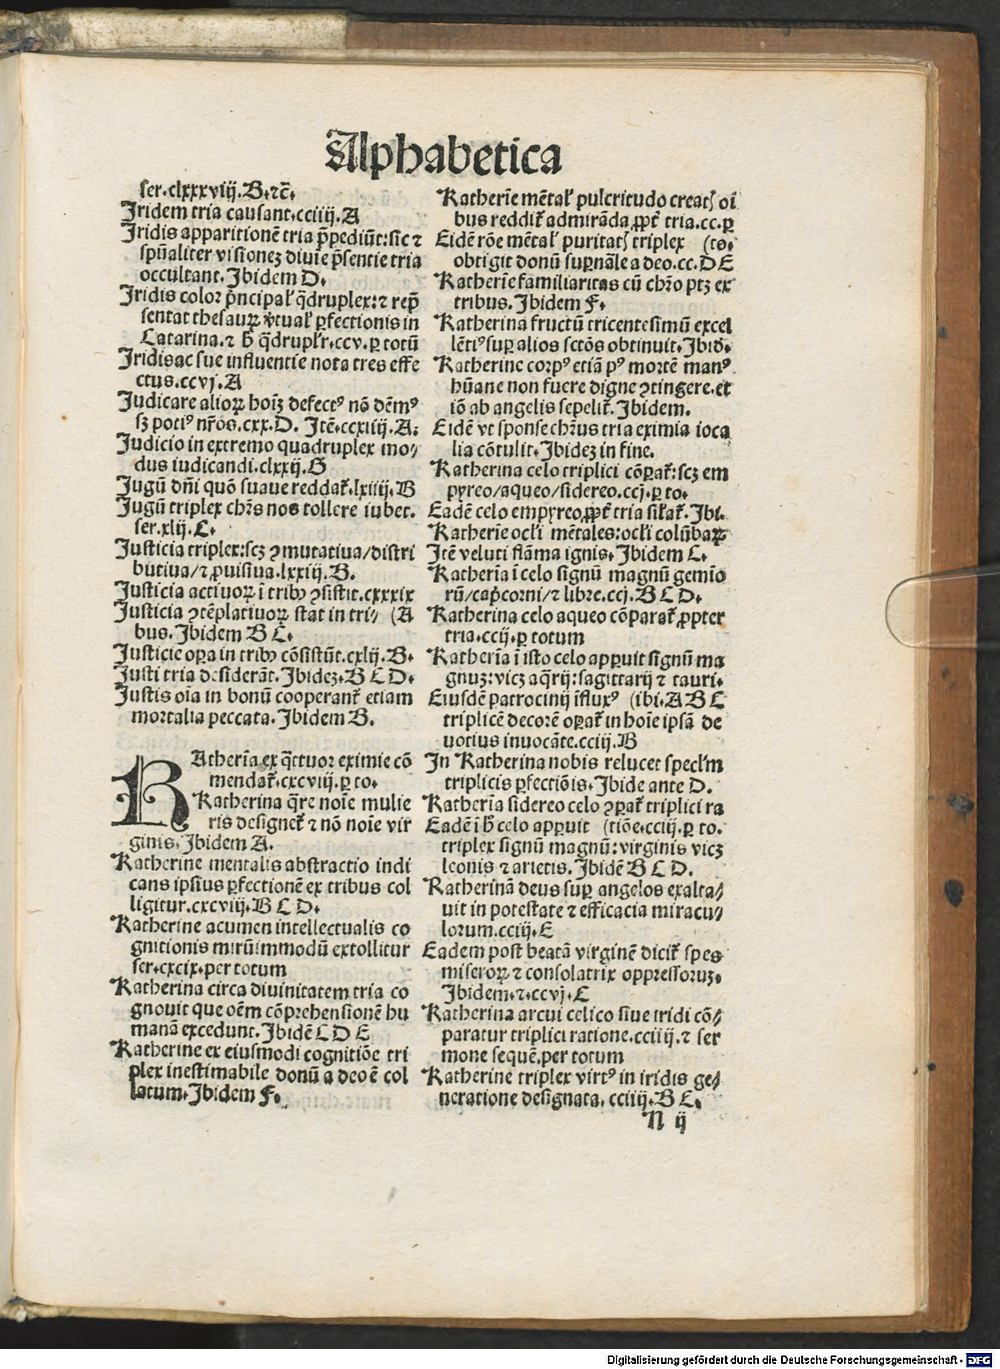 Alphabetica
ser.clxxxviij.B.⁊c̄.
Iridem tria causant.cciiij.A
Iridis apparitionē tria p̄pediūt:sic ⁊
spūaliter visiones diuīe p̄sentie tria
occultant. Ibidem D.
Iridis color p̄ncipal' q̄druplex:⁊ rep̄
sentat thesauꝝ v̓tual' ꝑfectionis in
Catarina.⁊ h̄ q̄drupl'r.ccv.ꝑ totū
Iridis ac sue influentie nota tres effe
ctus.ccvj.A
Iudicare alioꝝ hoīs defectꝰ nō dēmꝰ
sꝫ potiꝰ nr̄os.cxx.D. Itē.ccxiiij.A.
Iudicio in extremo quadruplex mo/
dus iudicandi.clxxij.G
Iugū dn̄i quō suaue reddat̄.lxiiij.B
Iugū triplex chr̄s nos tollere iubet.
ser.xlij.C.
Iusticia triplex:scꝫ ꝯmutatiua/distri
butiua/⁊ ꝓuisiua.lxxiij.B.
Iusticia actiuoꝝ ī tribꝰ ꝯsistit.cxxxix
Iusticia ꝯtēplatiuoꝝ stat in tri/ (A
bus. Ibidem B C.
Iusticie oꝑa in tribꝰ cōsistūt.cxlij.B.
Iusti tria desiderāt. Ibidez.B C D.
Iustis oīa in bonū cooperant̄ etiam
mortalia peccata. Ibidem B.
KAtherīa ex q̄ttuor eximie cō
mendat̄.cxcviij.ꝑ to.
Katherina q̄re noīe mulie
ris designet̄ ⁊ nō noīe vir
ginis. Ibidem A.
Katherine mentalis abstractio indi
cans ipsius ꝑfectionē ex tribus col
ligitur.cxcviij.B C D.
Katherine acumen intellectualis co
gnitionis mirūimmodū extollitur
ser.cxcix.per totum
Katherina circa diuinitatem tria co
gnouit que oēm cōprehensionē hu
manā excedunt. Ibidē C D E
Katherine ex eiusmodi cognitiōe tri
plex inestimabile donū a deo ē col
latum. Ibidem F.
Katherīe mētal' pulcritudo creatꝭ oī
bus reddit̄ admirāda ꝓpt̄ tria.cc.ꝑ
Eidē rōe mētal' puritatꝭ triplex (to.
obtigit donū suꝑnāle a deo.cc.D E
Katherīe familiaritas cū chr̄o ptꝫ ex
tribus. Ibidem F.
Katherina fructū tricentesimū excel
lētiꝰ suꝑ alios sctōs obtinuit. Ibid.
Katherine corpꝰ etiā pꝰ mortē manꝰ
hūane non fuere digne ꝯtingere.et
iō ab angelis sepelit̄. Ibidem.
Eidē vt sponse chr̄us tria eximia ioca
lia cōtulit. Ibidez in fine.
Katherina celo triplici cōꝑat̄:scꝫ em
pyreo/aqueo/sidereo.ccj.ꝑ to.
Eadē celo empyreo ꝓpt̄ tria sil'at̄. Ibi.
Katherīe ocl'i mētales:ocl'i colūbaꝝ
Itē veluti flāma ignis. Ibidem C.
Katherīa ī celo signū magnū gemīo
rū/capͥcorni/⁊ libre.ccj.B C D.
Katherina celo aqueo cōparat̄ ꝓpter
tria.ccij.ꝑ totum
Katherīa ī isto celo apꝑuit signū ma
gnuꝫ:vicꝫ aq̄rij:sagittarij ⁊ tauri.
Eiusdē patrocinij īfluxꝰ (ibi.A B C
triplicē decorē oꝑat̄ in hoīe ipsā de
uotius inuocāte.cciij.B
In Katherina nobis relucet specl'm
triplicis ꝑfectiōis. Ibide ante D.
Katherīa sidereo celo ꝯꝑat̄ triplici ra
Eadē ī h̄ celo apꝑuit (tiōe.cciij.ꝑ to.
triplex signū magnū:virginis vicꝫ
leonis ⁊ arietis. Ibidē B C D.
Katherinā deus suꝑ angelos exalta/
uit in potestate ⁊ efficacia miracu/
lorum.cciij.E
Eadem post beatā virginē dicit̄ spes
miseroꝝ ⁊ consolatrix oppressorum.
Ibidem.⁊.ccvj.C
Katherina arcui celico siue iridi cō/
paratur triplici ratione.cciiij.⁊ ser
mone sequē.per totum
Katherine triplex virtꝰ in iridis ge/
neratione designata. cciiij.B C.
N ij
Digitalisierung gefördert durch die Deutsche Forschungsgemeinschaft - DFG